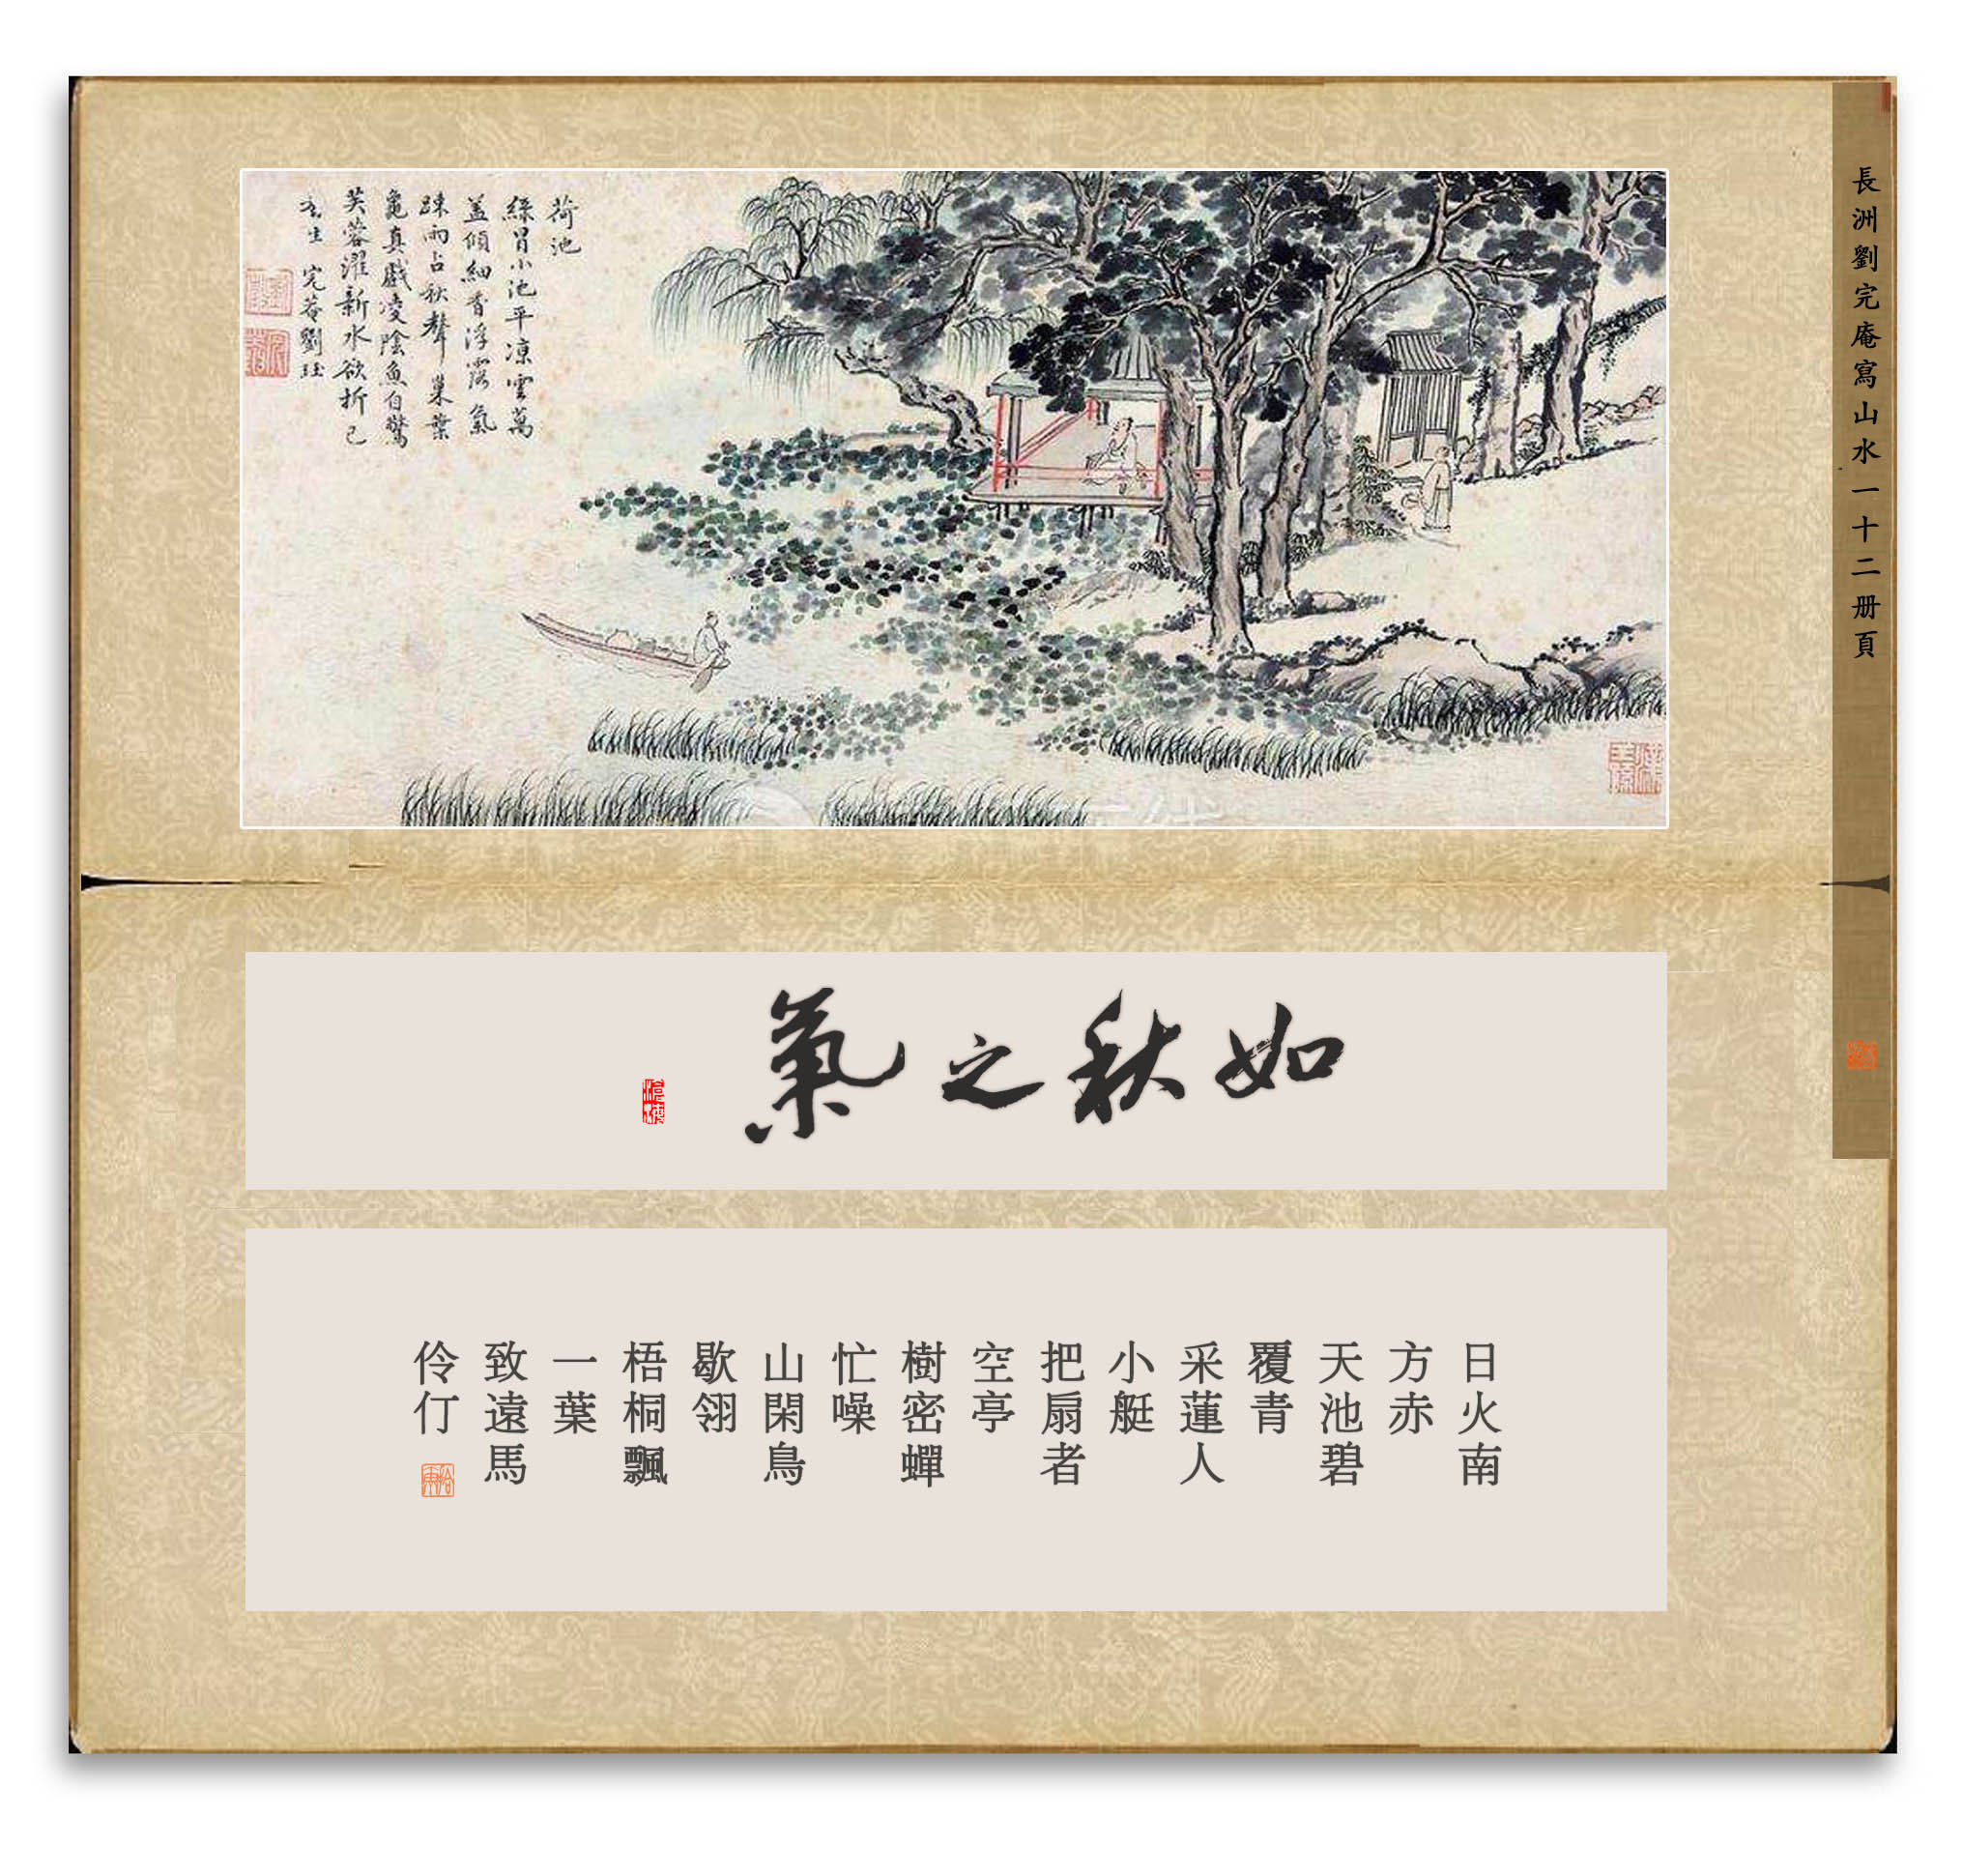 長洲劉完庵寫山水一十二册頁
荷池
綠罥小池平凉雲萬
蓋傾細香浮露氣
踈雨占秋聲巢葉
龜真戲凌陰魚自驚
芙蓉濯新水欲折已
完菴劉珏
如秋之氣
日火南
方赤
天池碧
覆青
采蓮人
小艇
把扇者
空亭
樹密蟬
忙噪
山閑鳥
歇翎
梧桐飄
一葉
致遠馬
伶仃